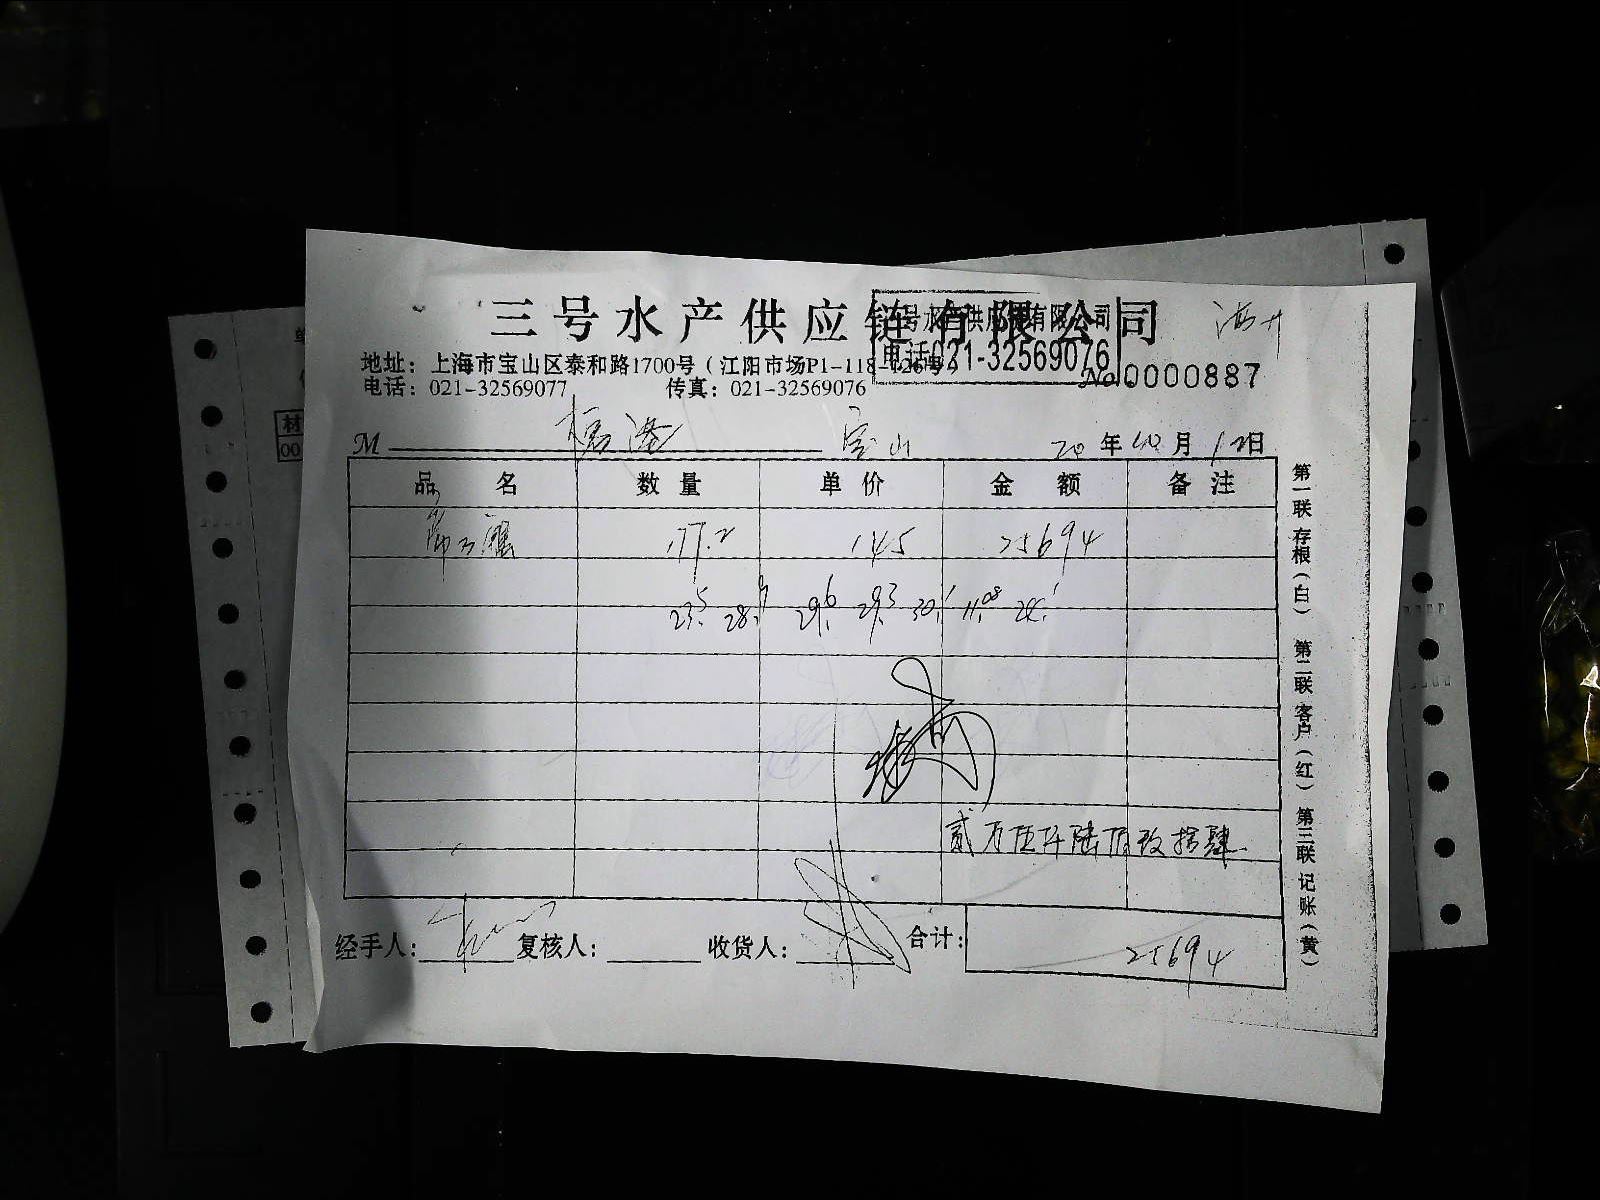 三号水产供应链有限公司
三号水产供应链有限公司
电话021-32569076
地址：上海市宝山区泰和路1700号（江阳市场P1-118-126号）
电话：021-32569077 传真：021-32569076
No.0000887
M 宝山 20年10月12日
品名 数量 单价 金额 备注
177.2 145 25694
23.5 28.9 29.6 29.3 30.1 11.08 24.1
贰万伍仟陆佰玖拾肆
经手人： 复核人： 收货人： 合计： 25694
第一联存根（白） 第二联客户（红） 第三联记账（黄）
材
00